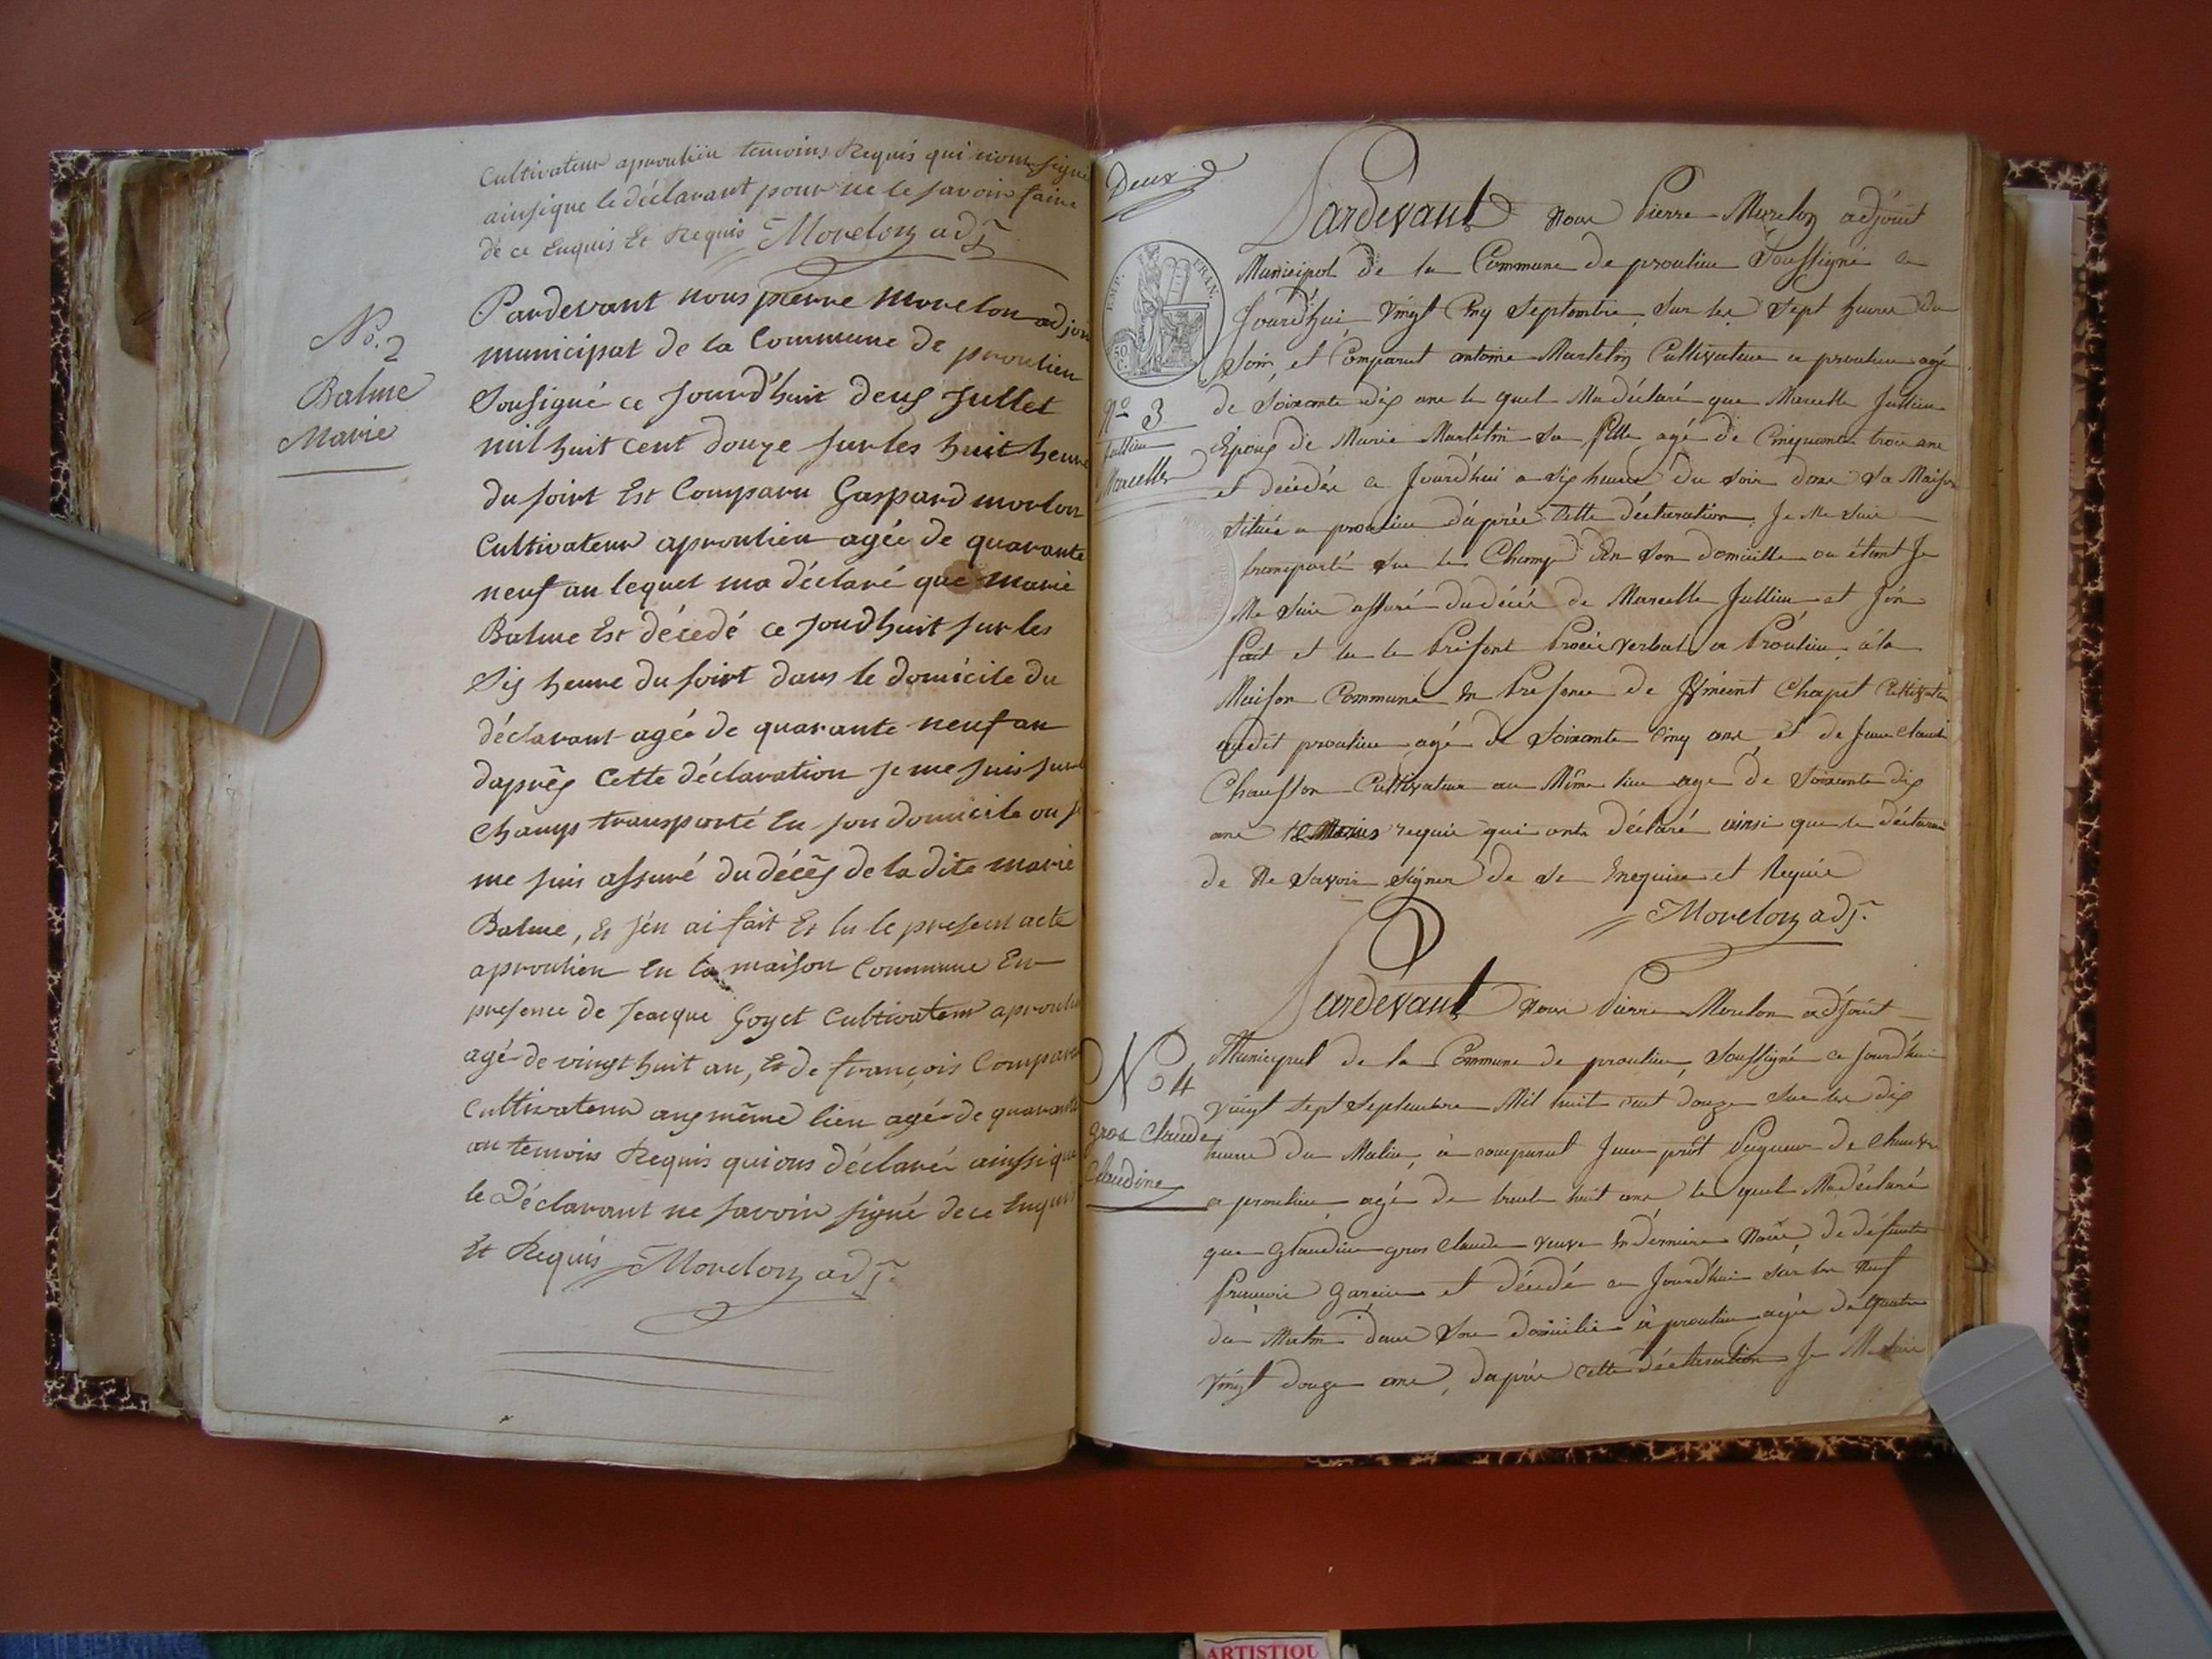 Cultivateur aproulieu temoins Requis qui n'ont signe
ainsique le déclarant pour ne le savoir faire
de ce Enquis Et Requis Morelon adj.
No. 2
Balme
Marie
Pardevant nous pierre morelon adjoin
municipat de la Commune de proulieu
Sousigné ce Jourd'huit deux Jullet
mil huit cent douze sur les huit heure
du soirt Est Comparu Gaspard morlon
Cultivateur aproulieu agée de quarante
neuf an lequel ma déclaré que marie
Balme Est décedé ce jourdhuit sur les
Six heure du soirt dans le domicile du
déclarant agée de quarante neuf an
daprês Cette déclaration Je me suis sur le
champs transporté En son domicile ou je
me suis assuré du décês de la dite marie
Balme, Et j'én ai fait Et lu le present acte
aproulieu En la maison Commune En
presence de Jeacque Goyet Cultivateur aproulieu
agé de vingt huit an, Et de françois Compara
Cultivateur aux même lieu agé de quarante
an temoins Requis qui ons déclaréz ainssi que
le Déclarant ne savoir signé de ce Enquis
Et Requis Morelon adj.
Deux
Pardevant nous Pierre Morelon adjoint
Municipal de la Commune de proulieu Soussigné ce
TIMP. FRAN.
50 C.
Jourd'hui Vingt Cinq Septembre, Sur les Sept heures du
Soir, et Comparut antoine Martelin Cultivateur a proulieu agé
No 3
Jullien
Marcelle
de Soixante dix ans le quel Ma déclaré que Marcelle Jullien
Epoux de Marie Martelin Sa fille agé de Cinquante trois ans
et décédée ce Jourd'hui a Six heures du Soir dans Sa Maison
Située a proulieu d'aprés Cette déclaration Je Me Suis
transporté Sur le Champ En Son domicille ou étant Je
Me Suis assuré du décés de Marcelle Jullien et J'én
fait et lu le Présent Procés verbal a Proulieu, á la
Maison Commune En Presence de Chapet Cultivateur
audit proulieu agé de Soixante Cinq ans et de Jean Claude
Chausson Cultivateur au Même lieu agé de Soixante dix
ans temoins requis qui onts déclaré ainsi que le déclarant
de Ne Savoir Signer de Se Enquis et Requis
Morelon adj.
Pardevant Nous Pierre Morelon adjoint
No 4
gros Claude
Claudine
Municipal de la Commune de proulieu, Soussigné ce Jourd'hui
Vingt Sept Septembre Mil huit cent douze Sur les dix
heures du Matin, à comparut Jean Peigneur de Chanvre
a proulieu agé de trente huit ans le quel Ma déclaré
que Glaudine gros Claude veuve En dernière Noce de défunts
François Garein et décédé ce Jourd'hui Sur les Neuf
du Matin dans Son domicile à proulieu agée de quatre
Vingt douze ans, daprés Cette déclaration Je Me Suis
ARTISTIQU